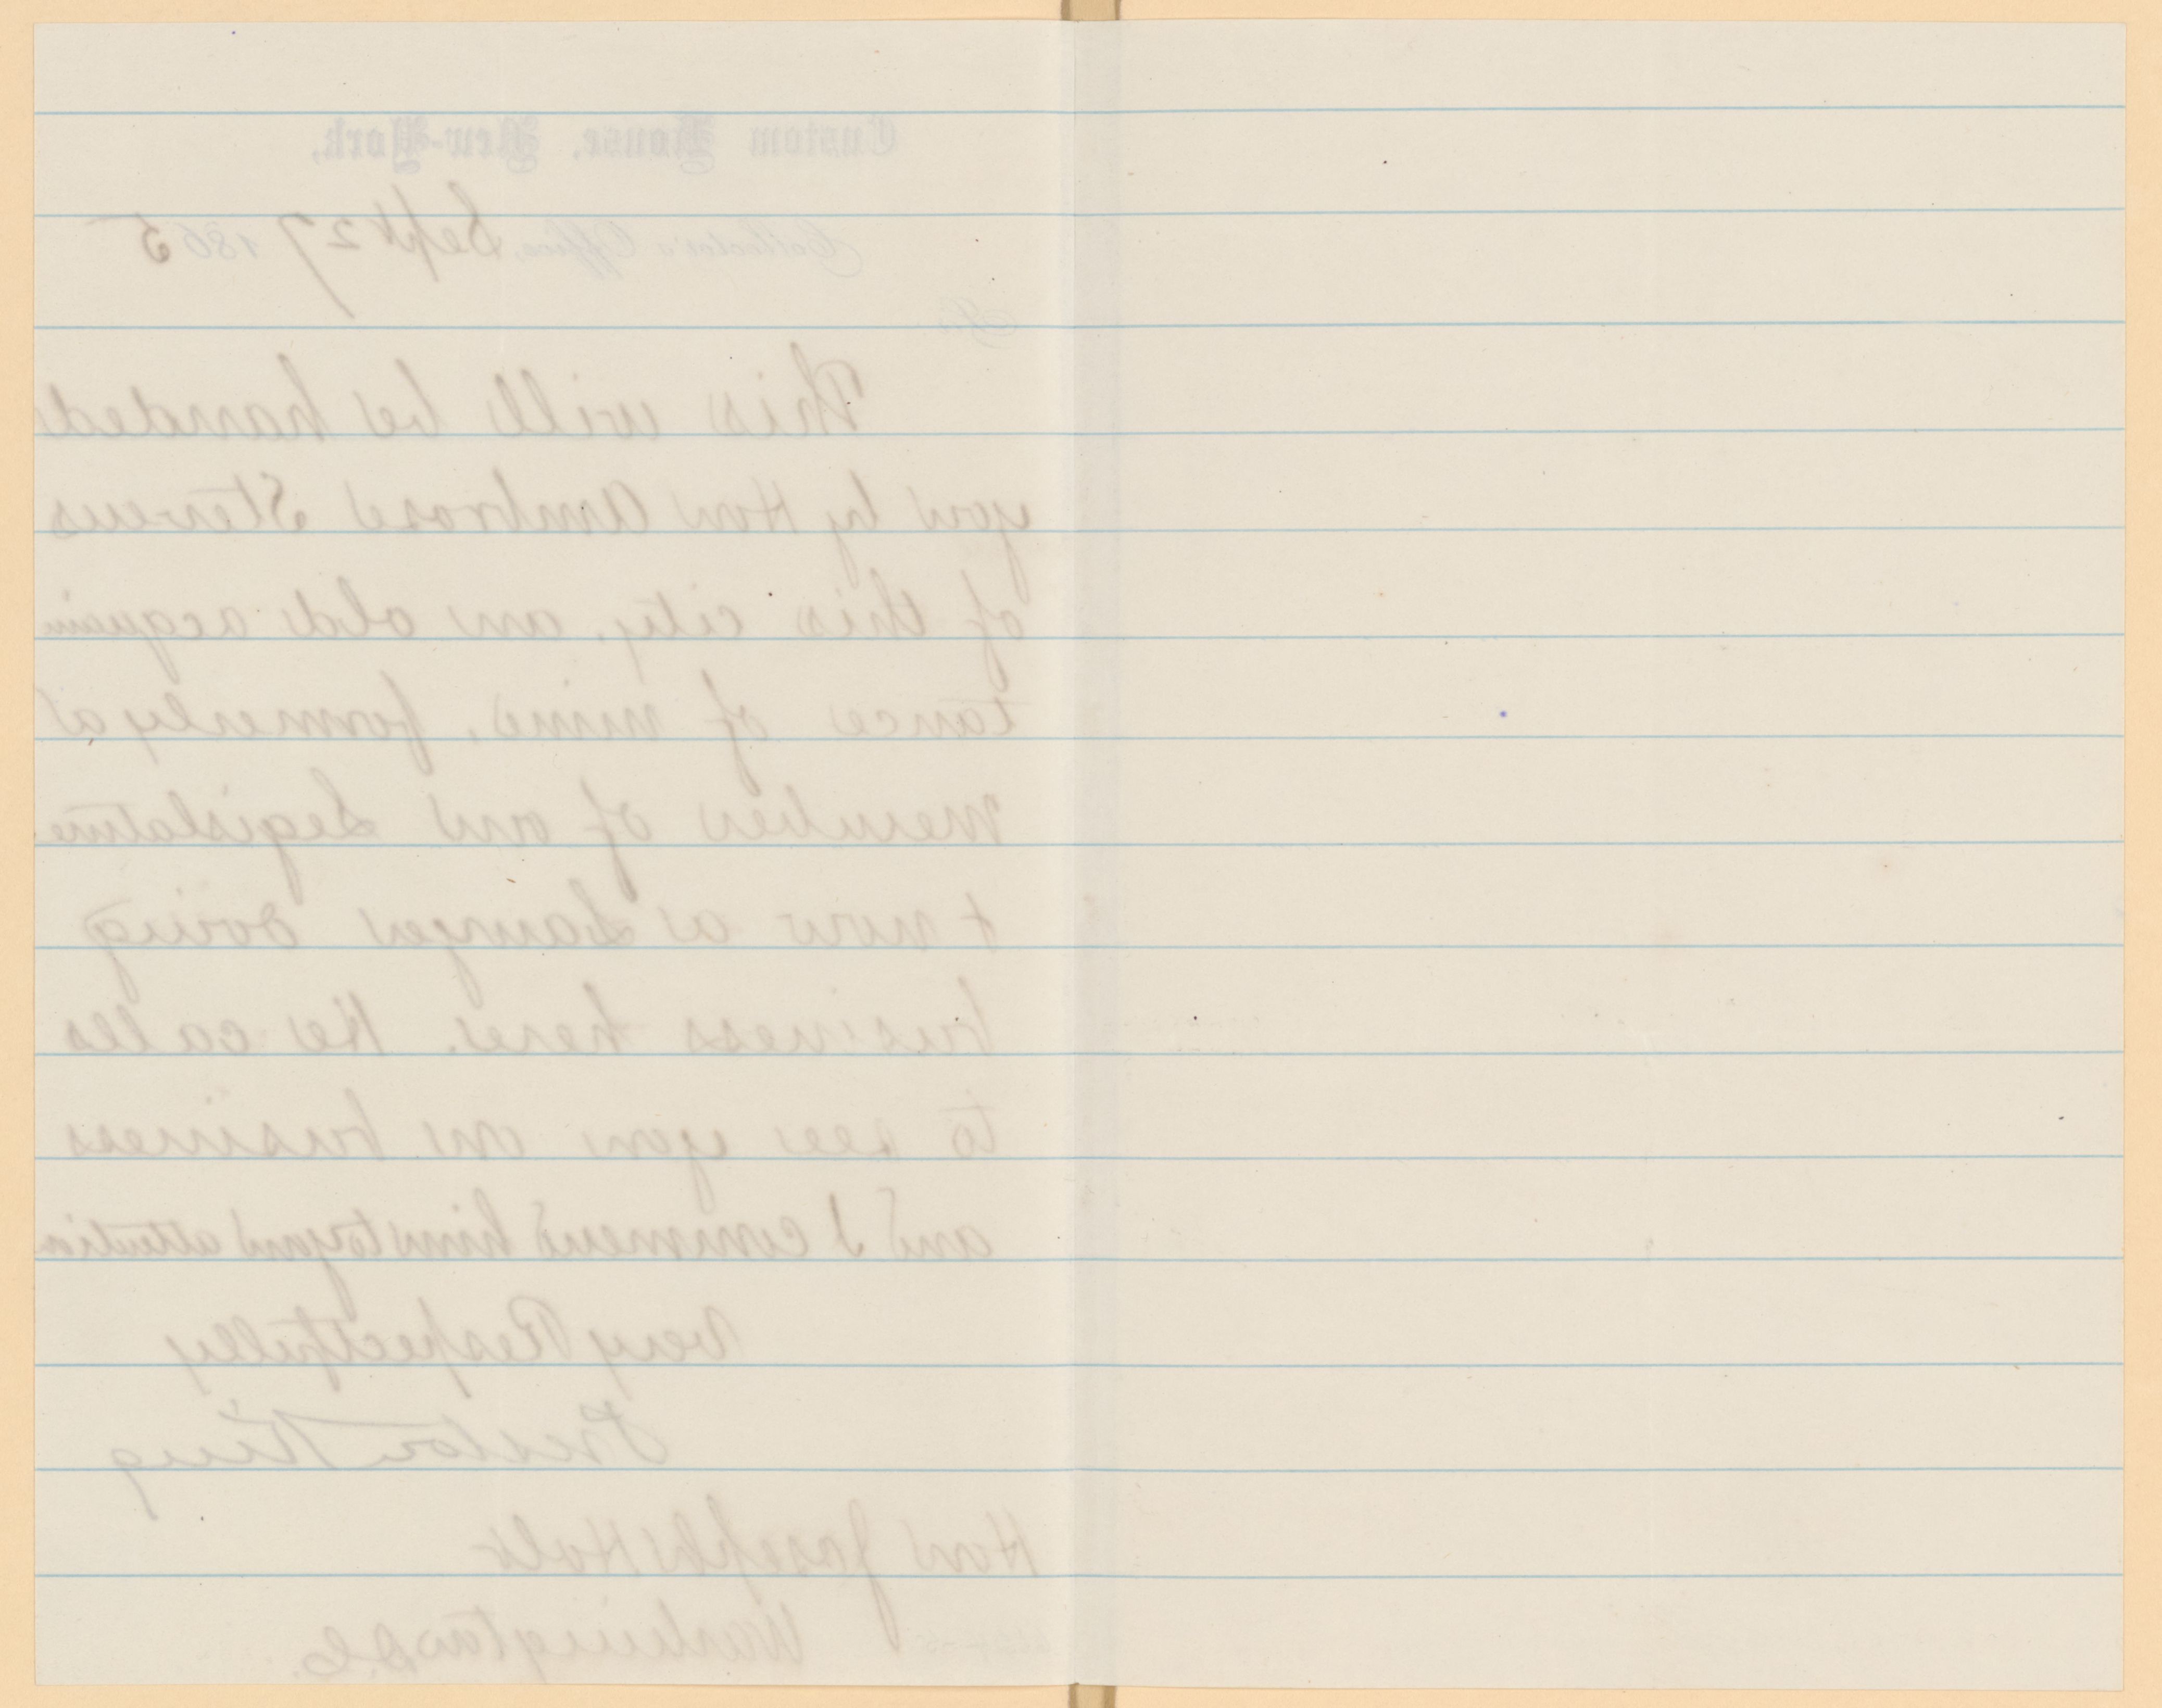 Custom House, New-York,
Collector's Office, Sept 27 1865
Sir
This will be handed
you by Hon Ambrose Stevens
of this city, an old acquain
tance of mine, formerly a
member of our Legislature
+ now a Lawyer doing
business here. He calls
to see you on business
and I commend him to your attention
Very Respectfully
Preston King
Hon Joseph Holt
Washington D.C.